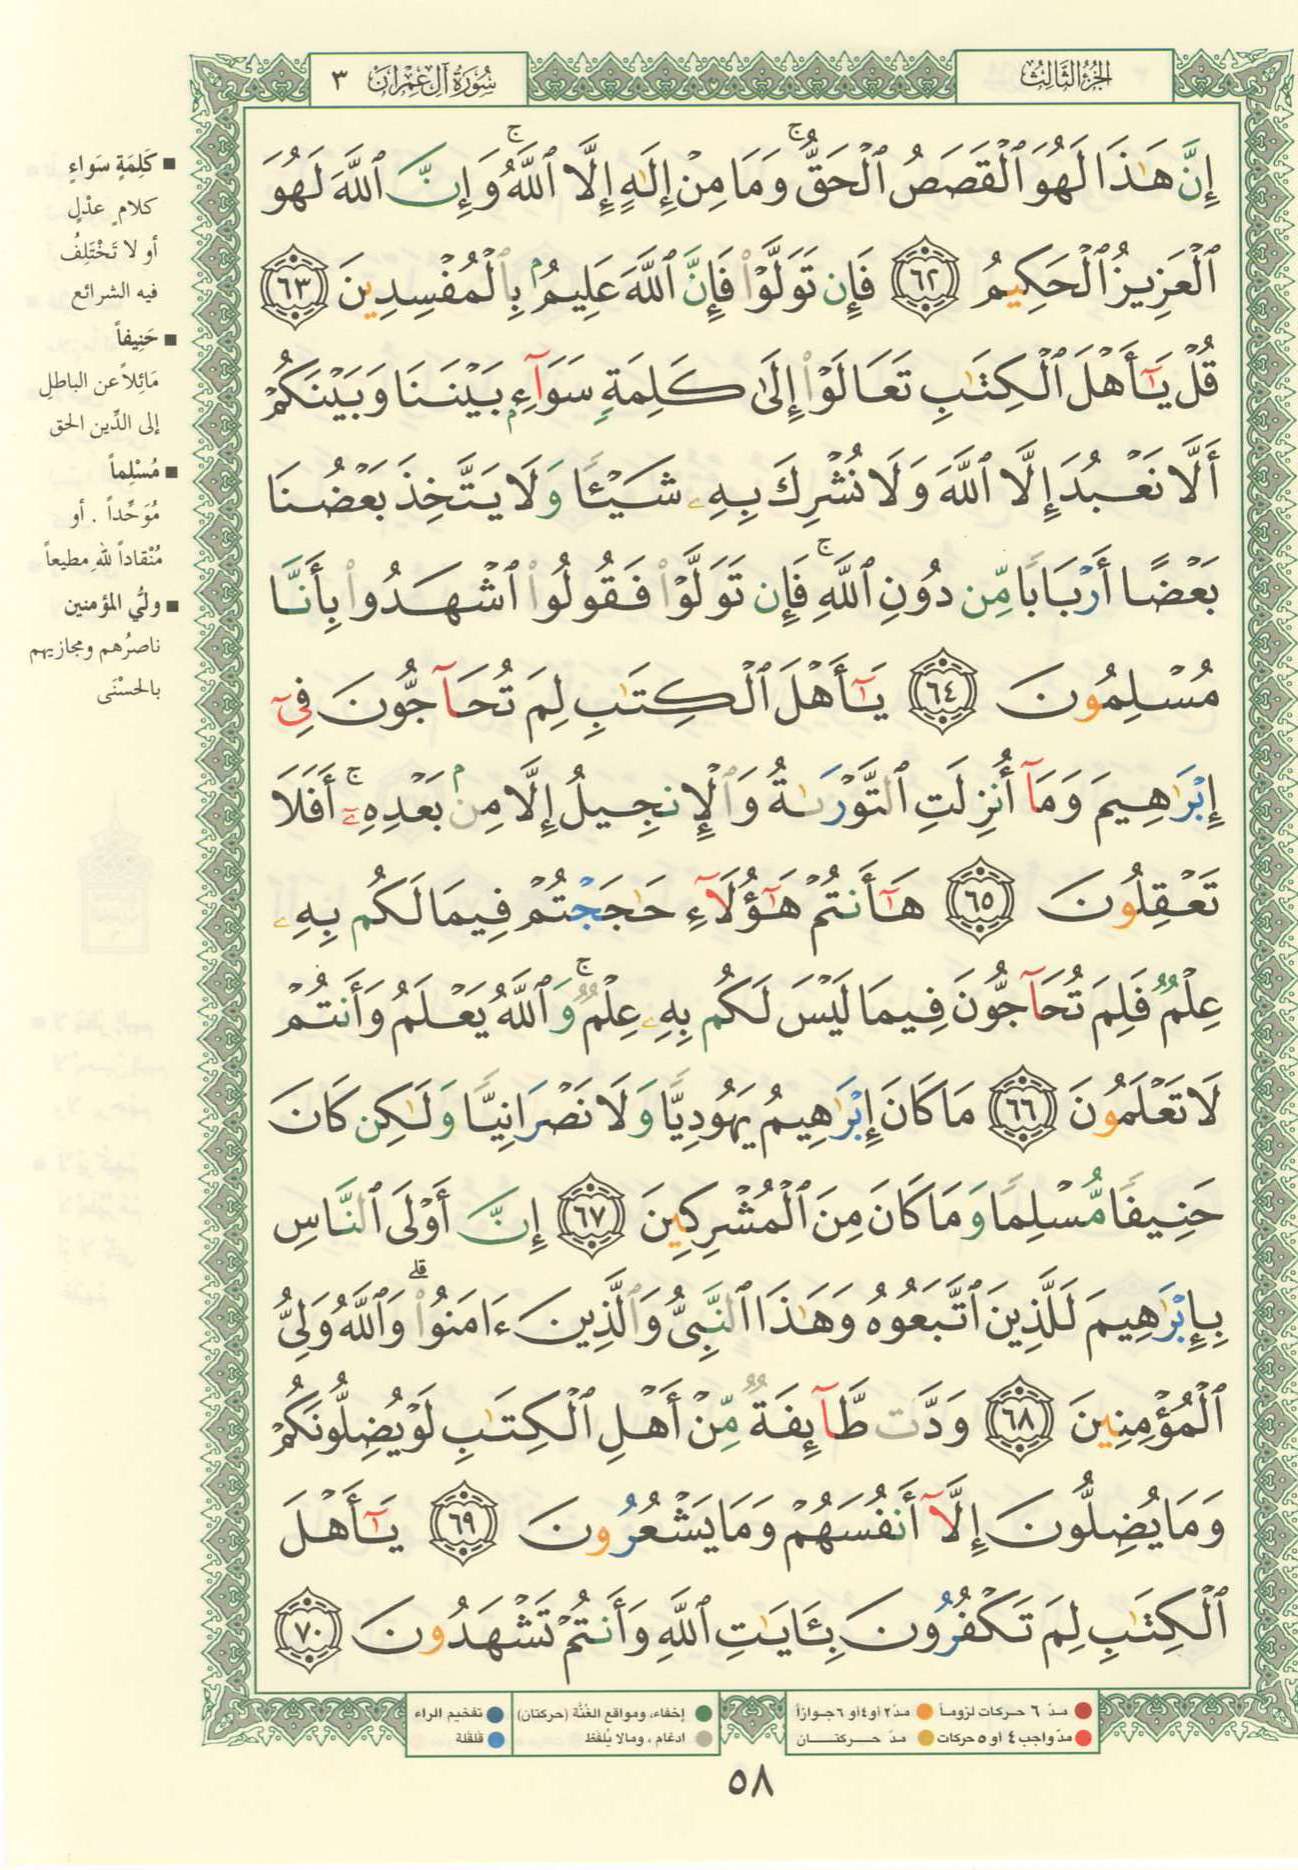 الجزء الثالث
سورة آل عمران ٣
إِنَّ هَٰذَا لَهُوَ ٱلْقَصَصُ ٱلْحَقُّ ۚ وَمَا مِنْ إِلَٰهٍ إِلَّا ٱللَّهُ ۚ وَإِنَّ ٱللَّهَ لَهُوَ
ٱلْعَزِيزُ ٱلْحَكِيمُ ٦٢ فَإِن تَوَلَّوْا۟ فَإِنَّ ٱللَّهَ عَلِيمٌۢ بِٱلْمُفْسِدِينَ ٦٣
قُلْ يَٰٓأَهْلَ ٱلْكِتَٰبِ تَعَالَوْا۟ إِلَىٰ كَلِمَةٍ سَوَآءٍۭ بَيْنَنَا وَبَيْنَكُمْ
أَلَّا نَعْبُدَ إِلَّا ٱللَّهَ وَلَا نُشْرِكَ بِهِۦ شَيْـًٔا وَلَا يَتَّخِذَ بَعْضُنَا
بَعْضًا أَرْبَابًا مِّن دُونِ ٱللَّهِ ۚ فَإِن تَوَلَّوْا۟ فَقُولُوا۟ ٱشْهَدُوا۟ بِأَنَّا
مُسْلِمُونَ ٦٤ يَٰٓأَهْلَ ٱلْكِتَٰبِ لِمَ تُحَآجُّونَ فِىٓ
إِبْرَٰهِيمَ وَمَآ أُنزِلَتِ ٱلتَّوْرَىٰةُ وَٱلْإِنجِيلُ إِلَّا مِنۢ بَعْدِهِۦٓ ۚ أَفَلَا
تَعْقِلُونَ ٦٥ هَٰٓأَنتُمْ هَٰٓؤُلَآءِ حَٰجَجْتُمْ فِيمَا لَكُم بِهِۦ
عِلْمٌ فَلِمَ تُحَآجُّونَ فِيمَا لَيْسَ لَكُم بِهِۦ عِلْمٌ ۚ وَٱللَّهُ يَعْلَمُ وَأَنتُمْ
لَا تَعْلَمُونَ ٦٦ مَا كَانَ إِبْرَٰهِيمُ يَهُودِيًّا وَلَا نَصْرَانِيًّا وَلَٰكِن كَانَ
حَنِيفًا مُّسْلِمًا وَمَا كَانَ مِنَ ٱلْمُشْرِكِينَ ٦٧ إِنَّ أَوْلَى ٱلنَّاسِ
بِإِبْرَٰهِيمَ لَلَّذِينَ ٱتَّبَعُوهُ وَهَٰذَا ٱلنَّبِىُّ وَٱلَّذِينَ ءَامَنُوا۟ ۗ وَٱللَّهُ وَلِىُّ
ٱلْمُؤْمِنِينَ ٦٨ وَدَّت طَّآئِفَةٌ مِّنْ أَهْلِ ٱلْكِتَٰبِ لَوْ يُضِلُّونَكُمْ
وَمَا يُضِلُّونَ إِلَّآ أَنفُسَهُمْ وَمَا يَشْعُرُونَ ٦٩ يَٰٓأَهْلَ
ٱلْكِتَٰبِ لِمَ تَكْفُرُونَ بِـَٔايَٰتِ ٱللَّهِ وَأَنتُمْ تَشْهَدُونَ ٧٠
■ كَلِمَةٍ سَواءٍ
كلامٍ عدْلٍ
أو لا تَخْتَلِفُ
فيه الشرائع
■ حَنِيفاً
مَائِلاً عن الباطلِ
إلى الدِّين الحق
■ مُسْلِماً
مُوَحِّداً . أو
مُنْقاداً للهِ مطيعاً
■ وليُّ المؤمنين
ناصرُهم ومجازيهم
بالحسْنَى
مدّ ٦ حركات لزوماً مدّ ٢ أو ٤ أو ٦ جوازاً إخفاء، ومواقع الغُنَّة (حركتان) تفخيم الراء
مدّ واجب ٤ أو ٥ حركات مدّ حركتان ادغام ، ومالا يُلفَظ قلقلة
٥٨